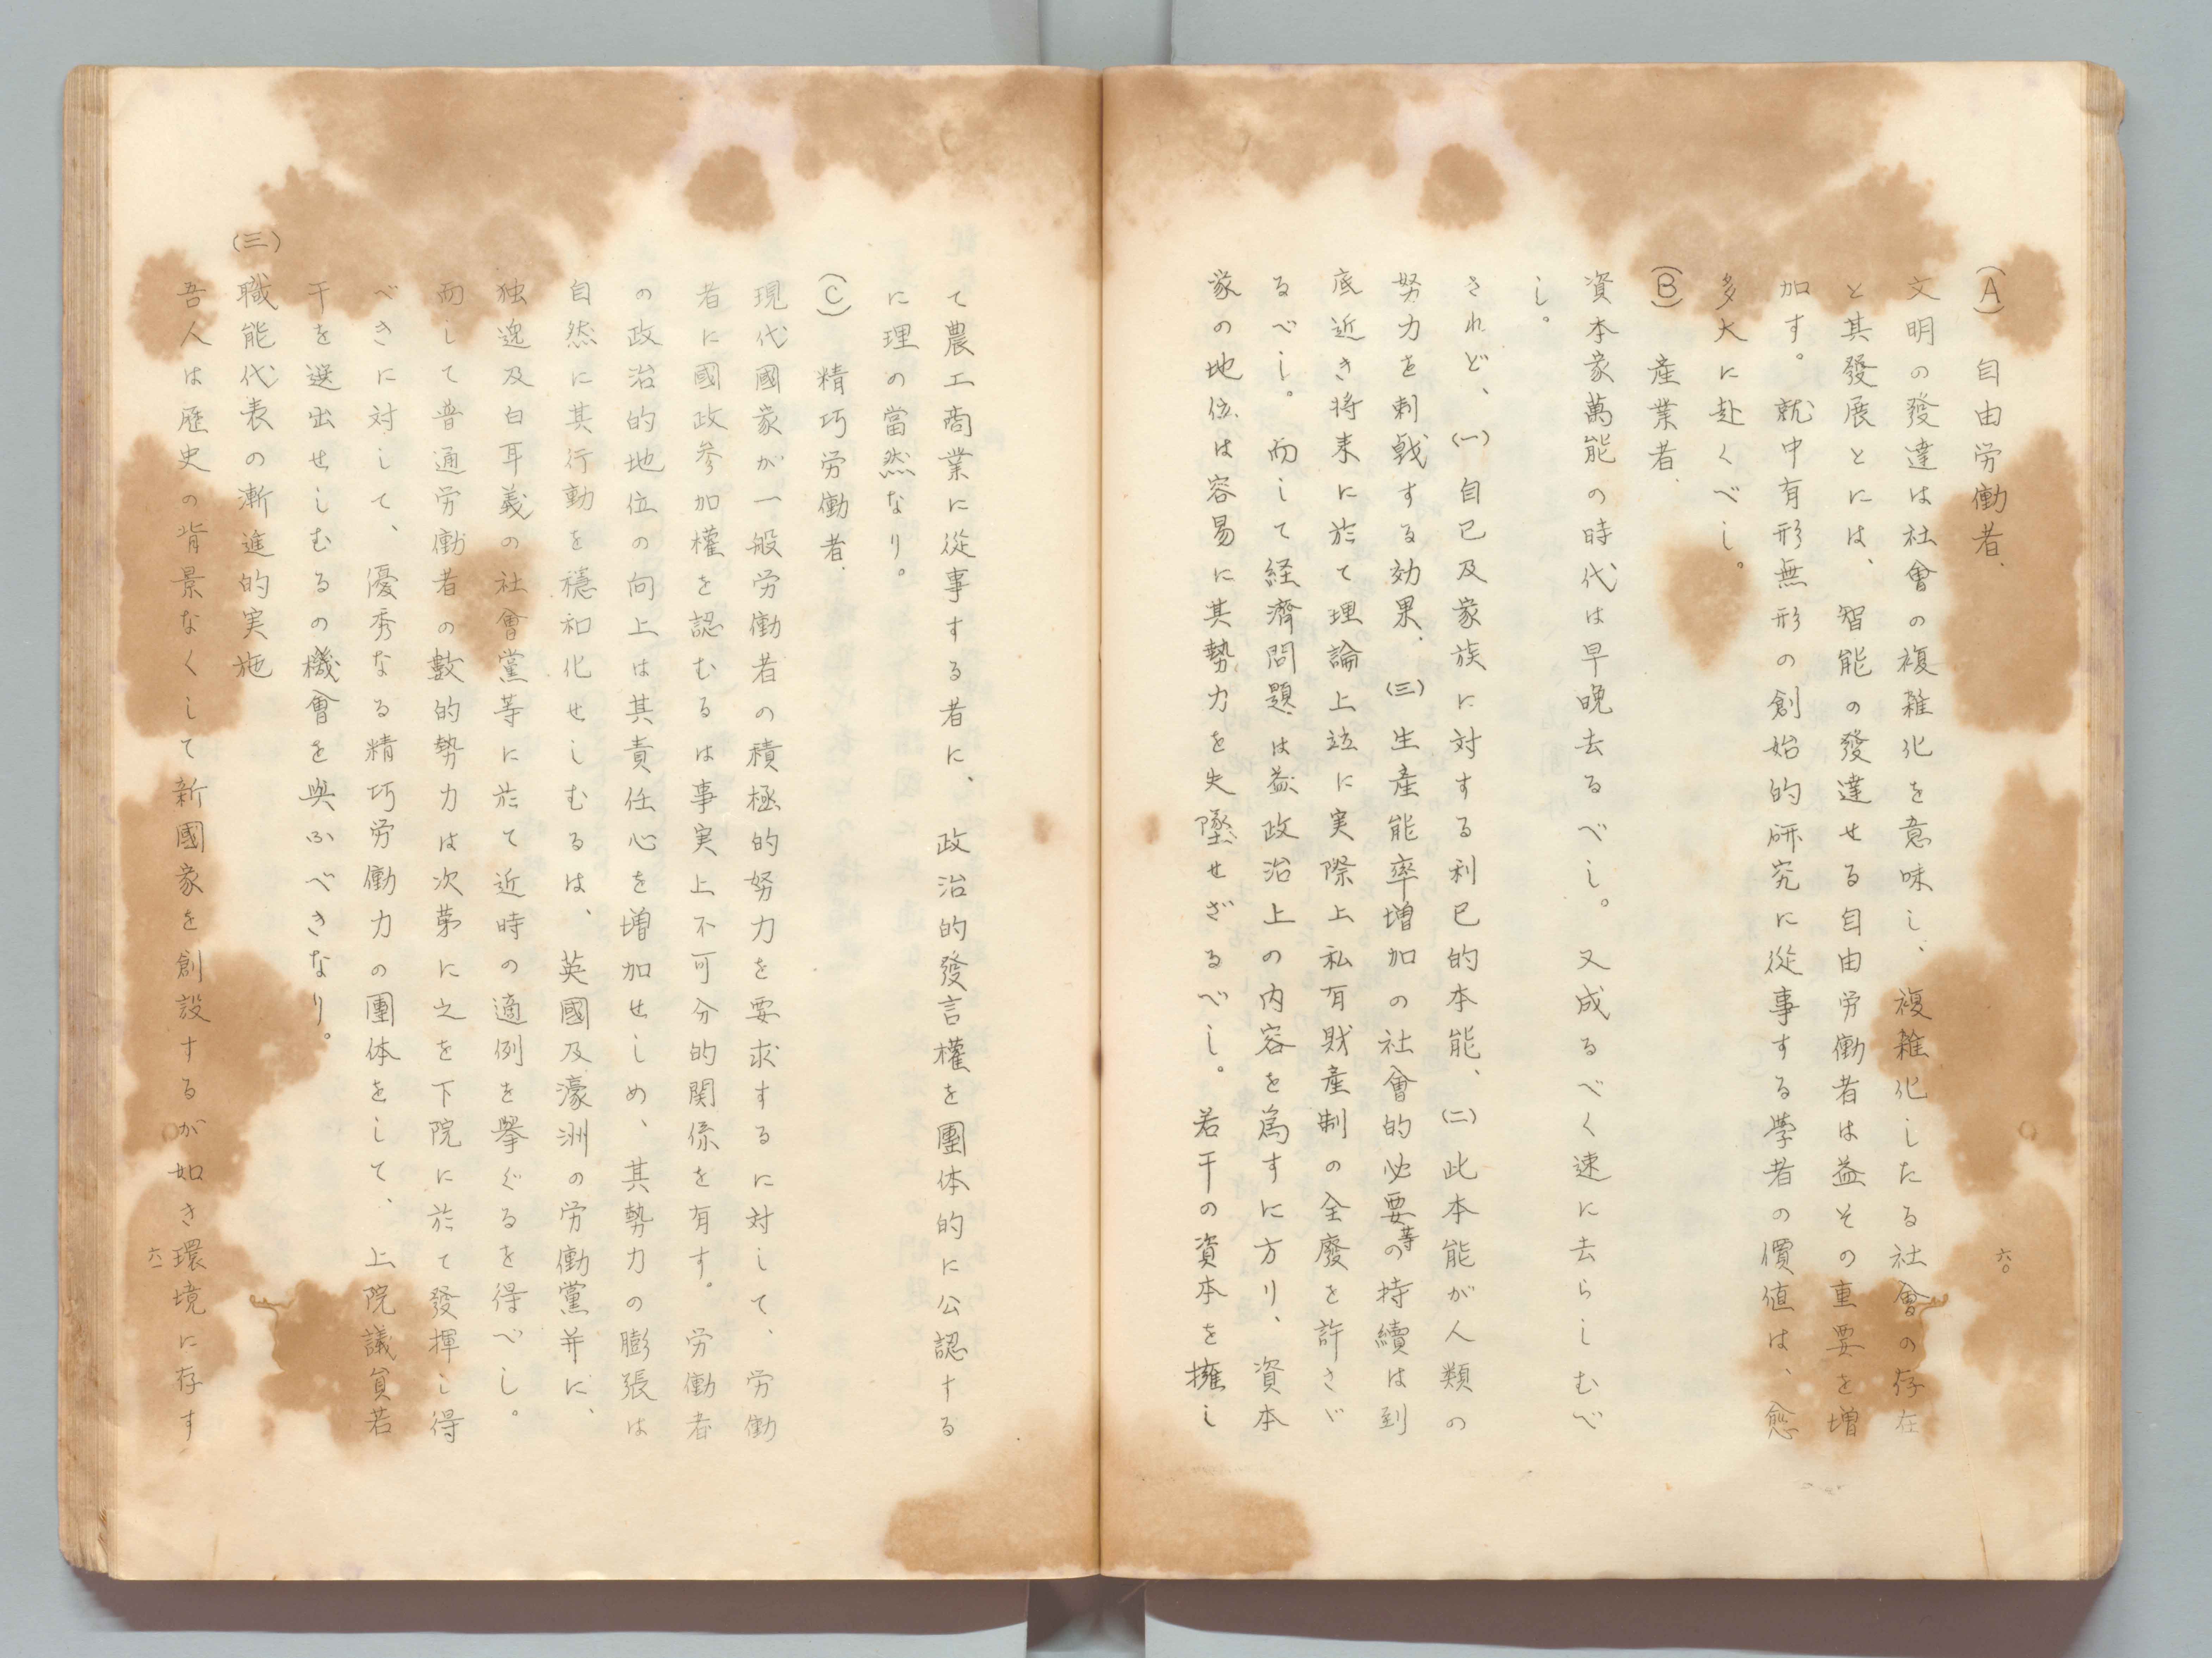 (A) 自由労働者、
文明の發達は社會の複雑化を意味し、複雑化したる社會の存在
と其發展とには、智能の發達せる自由労働者は益その重要を増
加す。就中有形無形の創始的研究に從事する學者の價値は、愈
多大に赴くべし。
(B) 産業者.
資本家萬能の時代は早晩去るべし。又成るべく速に去らしむべ
し。
されど、(一)自己及家族に対する利己的本能、(二)此本能が人類の
努力を刺戟する効果. (三)生産能率増加の社會的必要等の持續は到
底近き将来に於て理論上竝に実際上私有財産制の全廢を許さゞ
るべし。而して経濟問題は益政治上の内容を為すに方り、資本
家の地位は容易に其勢力を失墜せざるべし。若干の資本を擁し
六〇
て農工商業に從事する者に、政治的發言權を團体的に公認する
に理の當然なり。
(C) 精巧労働者.
現代國家が一般労働者の積極的努力を要求するに対して、労働
者に國政参加權を認むるは事実上不可分的関係を有す。労働者
の政治的地位の向上は其責任心を増加せしめ、其勢力の膨張は
自然に其行動を穏和化せしむるは、英國及濠洲の労働黨并に、
独逸及白耳義の社會黨等に於て近時の適例を擧ぐるを得べし。
而して普通労働者の數的勢力は次第に之を下院に於て發揮し得
べきに対して、優秀なる精巧労働力の團体をして、上院議員若
干を選出せしむるの機會を與ふべきなり。
(三)職能代表の漸進的実施
吾人は歴史の背景なくして新國家を創設するが如き環境に存す
六一